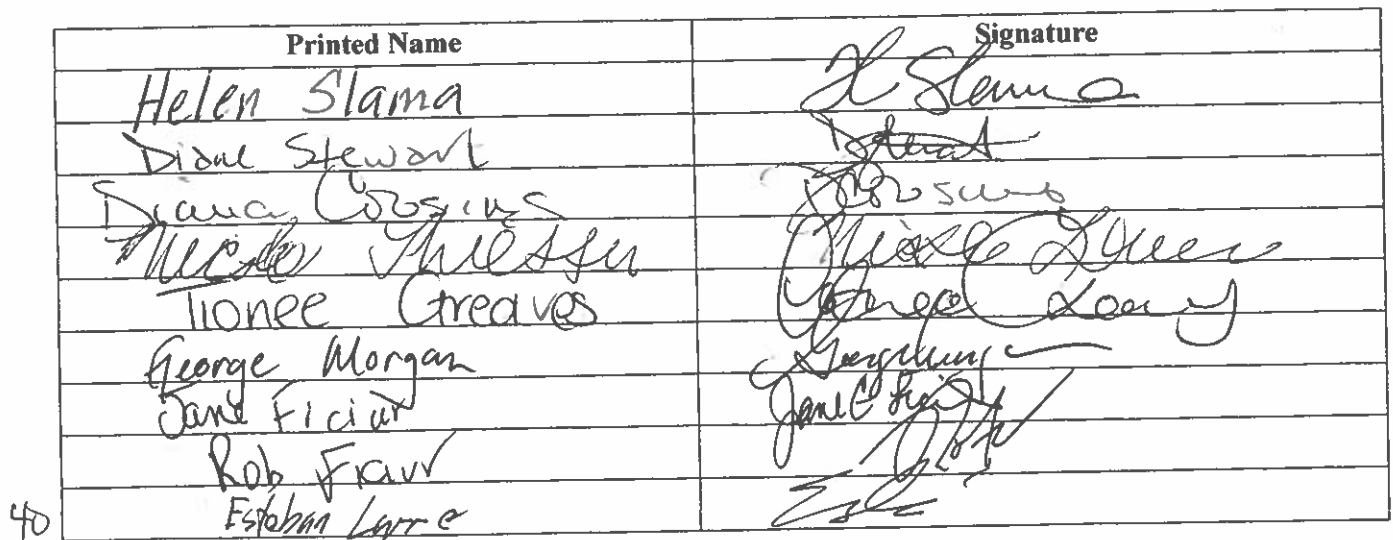 Printed Name Signature
Helen Slama H Slama
Diane Stewart DStewart
Diana Cousins
Nicole Thiessen
Tionee Greaves
George Morgan
Jane Ficiur Jane E Ficiur
Rob Ficiur
Esteban
40